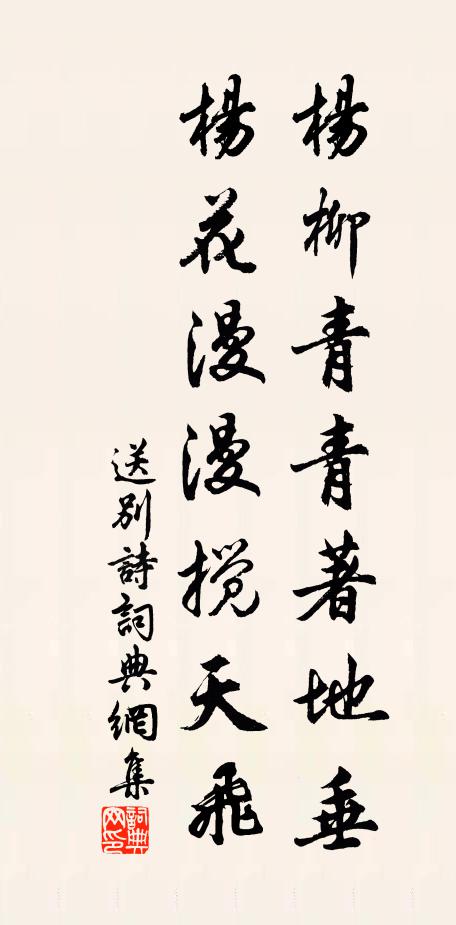 楊柳青青著地垂
楊花漫漫揽天飛
送別詩詞典網集
詞典
网印